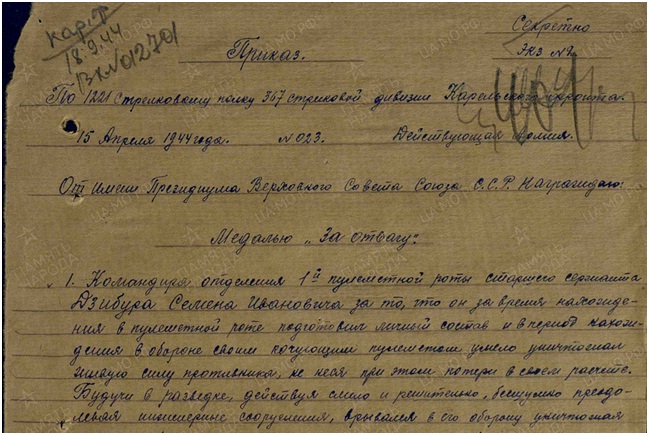 Карт
18.9.44
Вх№01270/1
Секретно
Экз №2
Приказ.
По 1221 стрелковому полку 367 стрелковой дивизии Карельского фронта.
15 Апреля 1944 года. №023. Действующая Армия.
От имени Президиума Верховного Совета Союза С.С.Р. Награждаю:
Медалью "За отвагу":
1. Командира отделения 1й пулеметной роты старшего сержанта
Дзибура Семена Ивановича за то, что он за время нахожде-
ния в пулеметной роте подготовил личный состав и в период нахож-
дения в обороне своим кочующим пулеметом умело уничтожал
живую силу противника, не неся при этом потери в своем расчете.
Будучи в разведке, действуя смело и решительно, бесшумно преодо-
левая инженерные сооружения, врывался в его оборону уничтожая